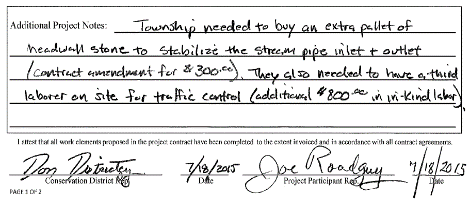 Additional Project Notes: Township needed to buy an extra pallet of
headwall stone to stabilize the stream pipe inlet + outlet
(contract amendment for $300.00). They also needed to have a third
laborer on site for traffic control (additional $800.00 in in-kind labor).
I attest that all work elements proposed in the project contract have been completed to the extent invoiced and in accordance with all contract agreements.
Don District 7/18/2015 Joe Roadguy 7/18/2015
Conservation District Date Project Participant Rep. Date
PAGE 1 OF 2